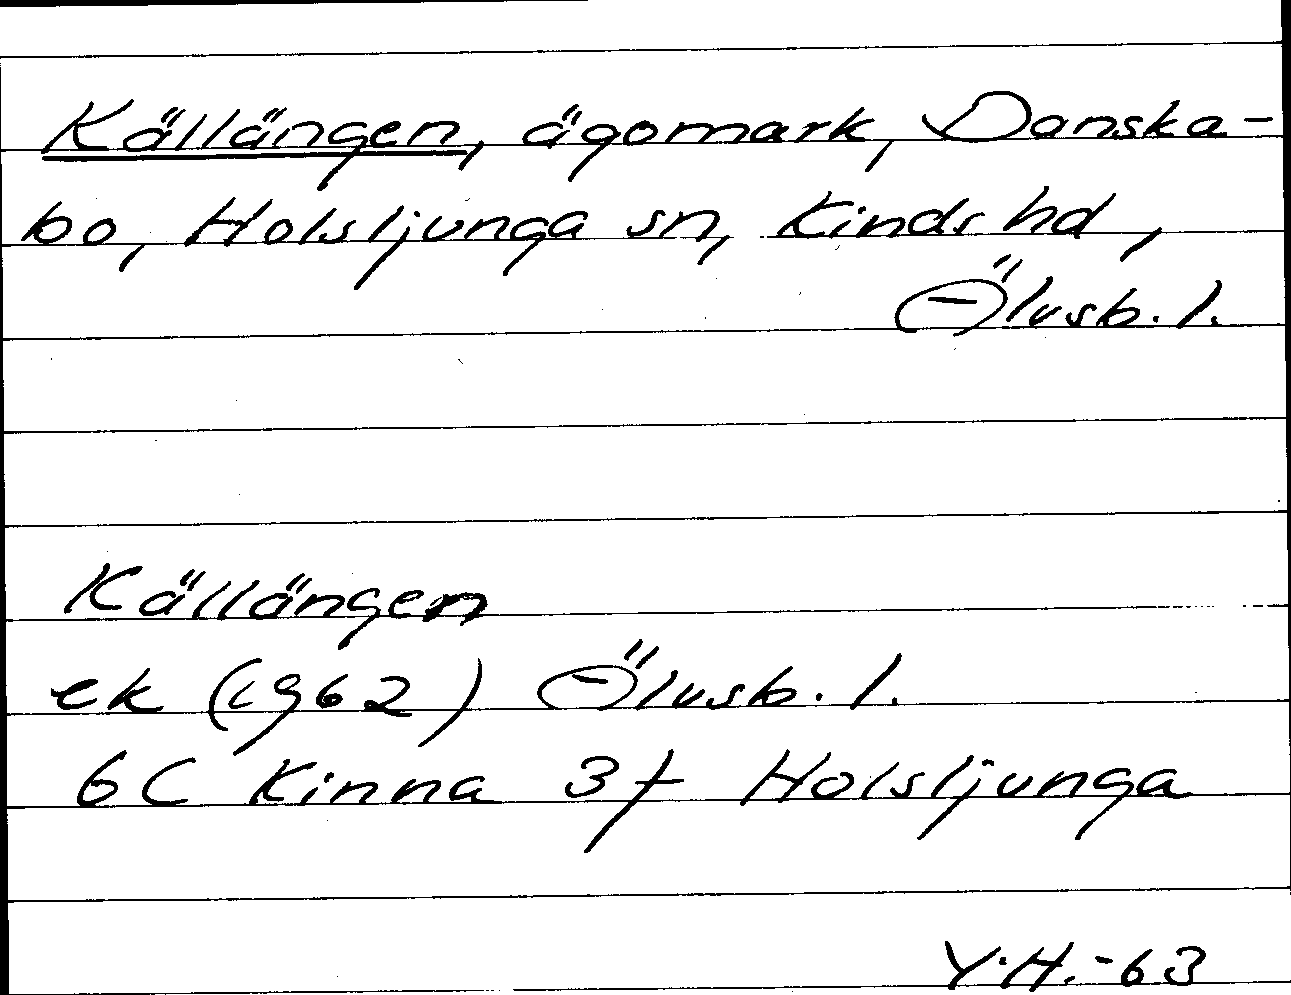 Källängen, ägomark, Danska-
bo, Holsljunga sn, Kinds hd,
Älvsb. l.
Källängen
ek (1962) Älvsb. l.
6C Kinna 3f Holsljunga
Y.H.-63